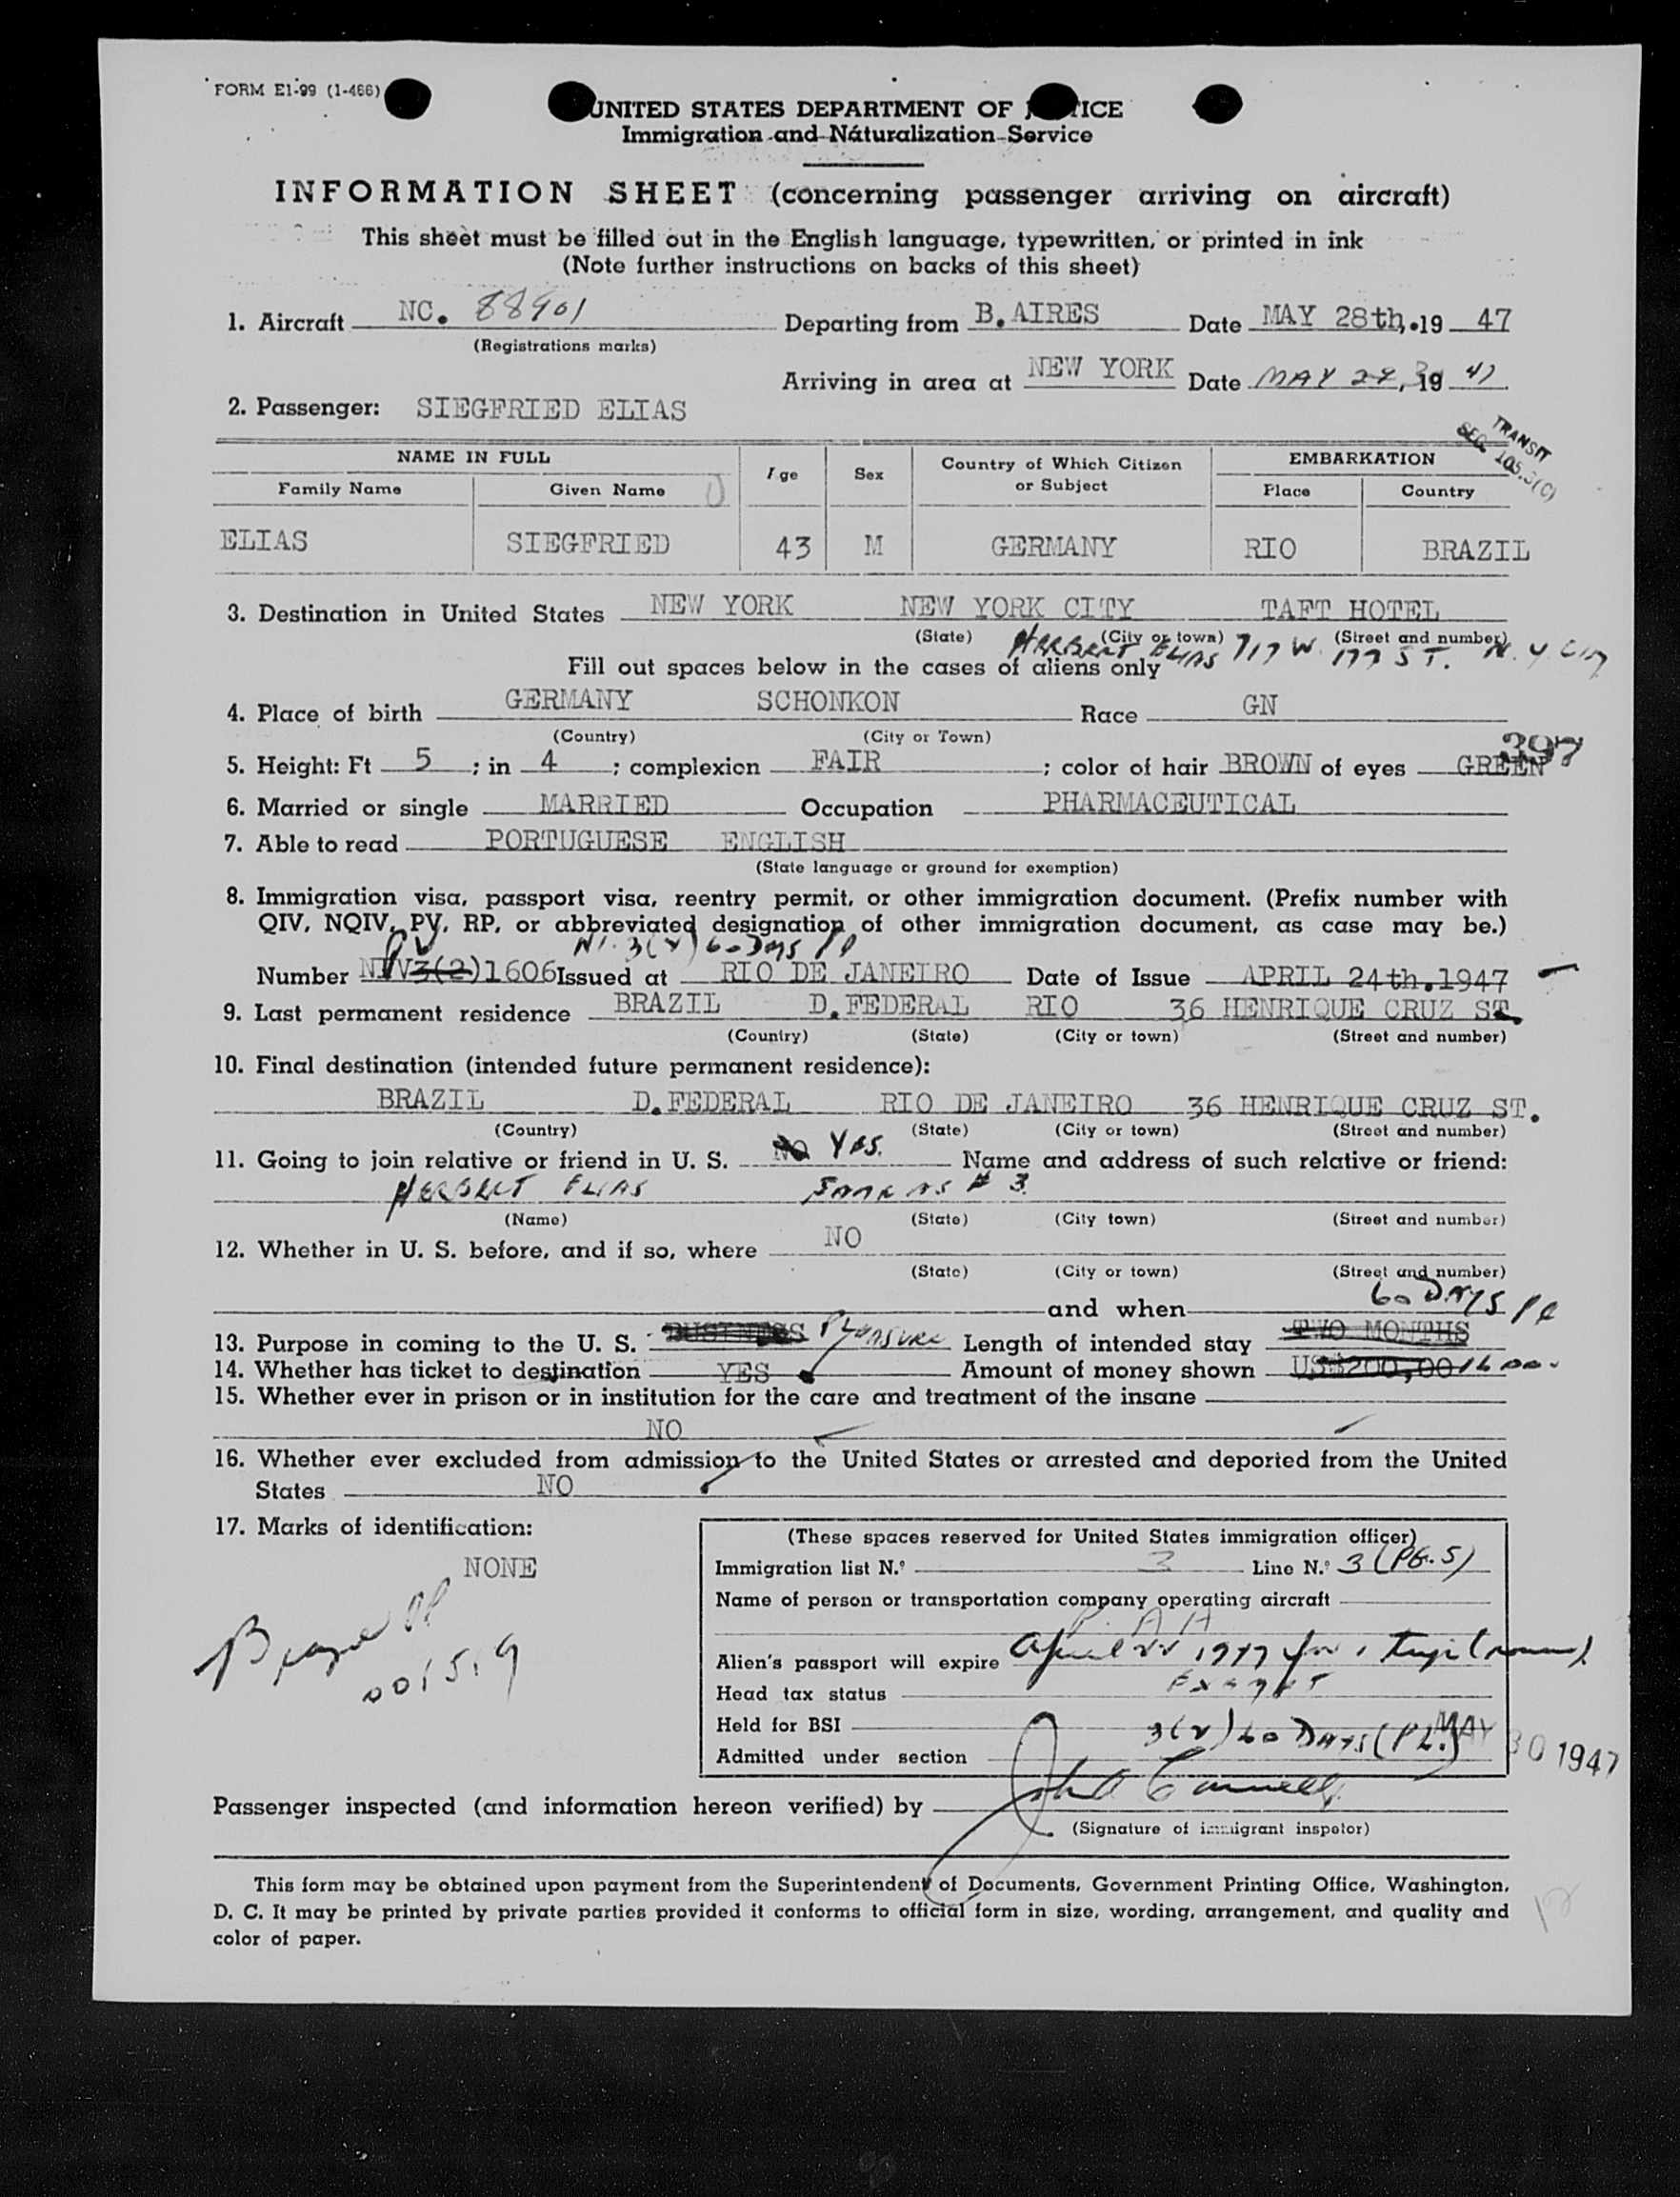 FORM EI-99 (1-466)
UNITED STATES DEPARTMENT OF J ICE
Immigration and Naturalization Service
INFORMATION SHEET (concerning passenger arriving on aircraft)
This sheet must be filled out in the English language, typewritten, or printed in ink
(Note further instructions on backs of this sheet)
1. Aircraft NC. 88901 Departing from B.AIRES Date MAY 28th, 19 47
(Registrations marks)
Arriving in area at NEW YORK Date MAY 29, 19 47
2. Passenger: SIEGFRIED ELIAS
TRANSIT
SEC. 105.3(C)
NAME IN FULL Age Sex Country of Which Citizen or Subject EMBARKATION
Family Name Given Name Place Country
ELIAS SIEGFRIED 43 M GERMANY RIO BRAZIL
3. Destination in United States NEW YORK NEW YORK CITY TAFT HOTEL
(State) (City or town) (Street and number)
HERBERT ELIAS 717 W. 177 ST. N.Y. City
Fill out spaces below in the cases of aliens only
4. Place of birth GERMANY SCHONKON Race GN
(Country) (City or Town)
397
5. Height: Ft 5 ; in 4 ; complexion FAIR ; color of hair BROWN of eyes GREEN
6. Married or single MARRIED Occupation PHARMACEUTICAL
7. Able to read PORTUGUESE ENGLISH
(State language or ground for exemption)
8. Immigration visa, passport visa, reentry permit, or other immigration document. (Prefix number with
QIV, NQIV, PV, RP, or abbreviated designation of other immigration document, as case may be.)
PV 3(2) 60 DAYS Pl
Number 3(2)1606 Issued at RIO DE JANEIRO Date of Issue APRIL 24th.1947
9. Last permanent residence BRAZIL D.FEDERAL RIO 36 HENRIQUE CRUZ ST.
(Country) (State) (City or town) (Street and number)
10. Final destination (intended future permanent residence):
BRAZIL D.FEDERAL RIO DE JANEIRO 36 HENRIQUE CRUZ ST.
(Country) (State) (City or town) (Street and number)
11. Going to join relative or friend in U. S. NO YES. Name and address of such relative or friend:
HERBERT ELIAS SAME AS # 3
(Name) (State) (City town) (Street and number)
12. Whether in U. S. before, and if so, where NO
(State) (City or town) (Street and number)
and when
60 DAYS Pl
13. Purpose in coming to the U. S. BUSINESS Pleasure Length of intended stay TWO MONTHS
14. Whether has ticket to destination YES Amount of money shown US$200,00 1600-
15. Whether ever in prison or in institution for the care and treatment of the insane
NO
16. Whether ever excluded from admission to the United States or arrested and deported from the United
States NO
17. Marks of identification:
NONE
001519
(These spaces reserved for United States immigration officer)
Immigration list N.º 3 Line N.º 3 (PG. 5)
Name of person or transportation company operating aircraft
P. A A
Alien's passport will expire April 22 1947 for 1 trip (round)
Head tax status Exempt
Held for BSI
Admitted under section 3(2) 60 DAYS (PL.) MAY 30 1947
Passenger inspected (and information hereon verified) by
(Signature of immigrant inspetor)
This form may be obtained upon payment from the Superintendent of Documents, Government Printing Office, Washington,
D. C. It may be printed by private parties provided it conforms to official form in size, wording, arrangement, and quality and
color of paper.